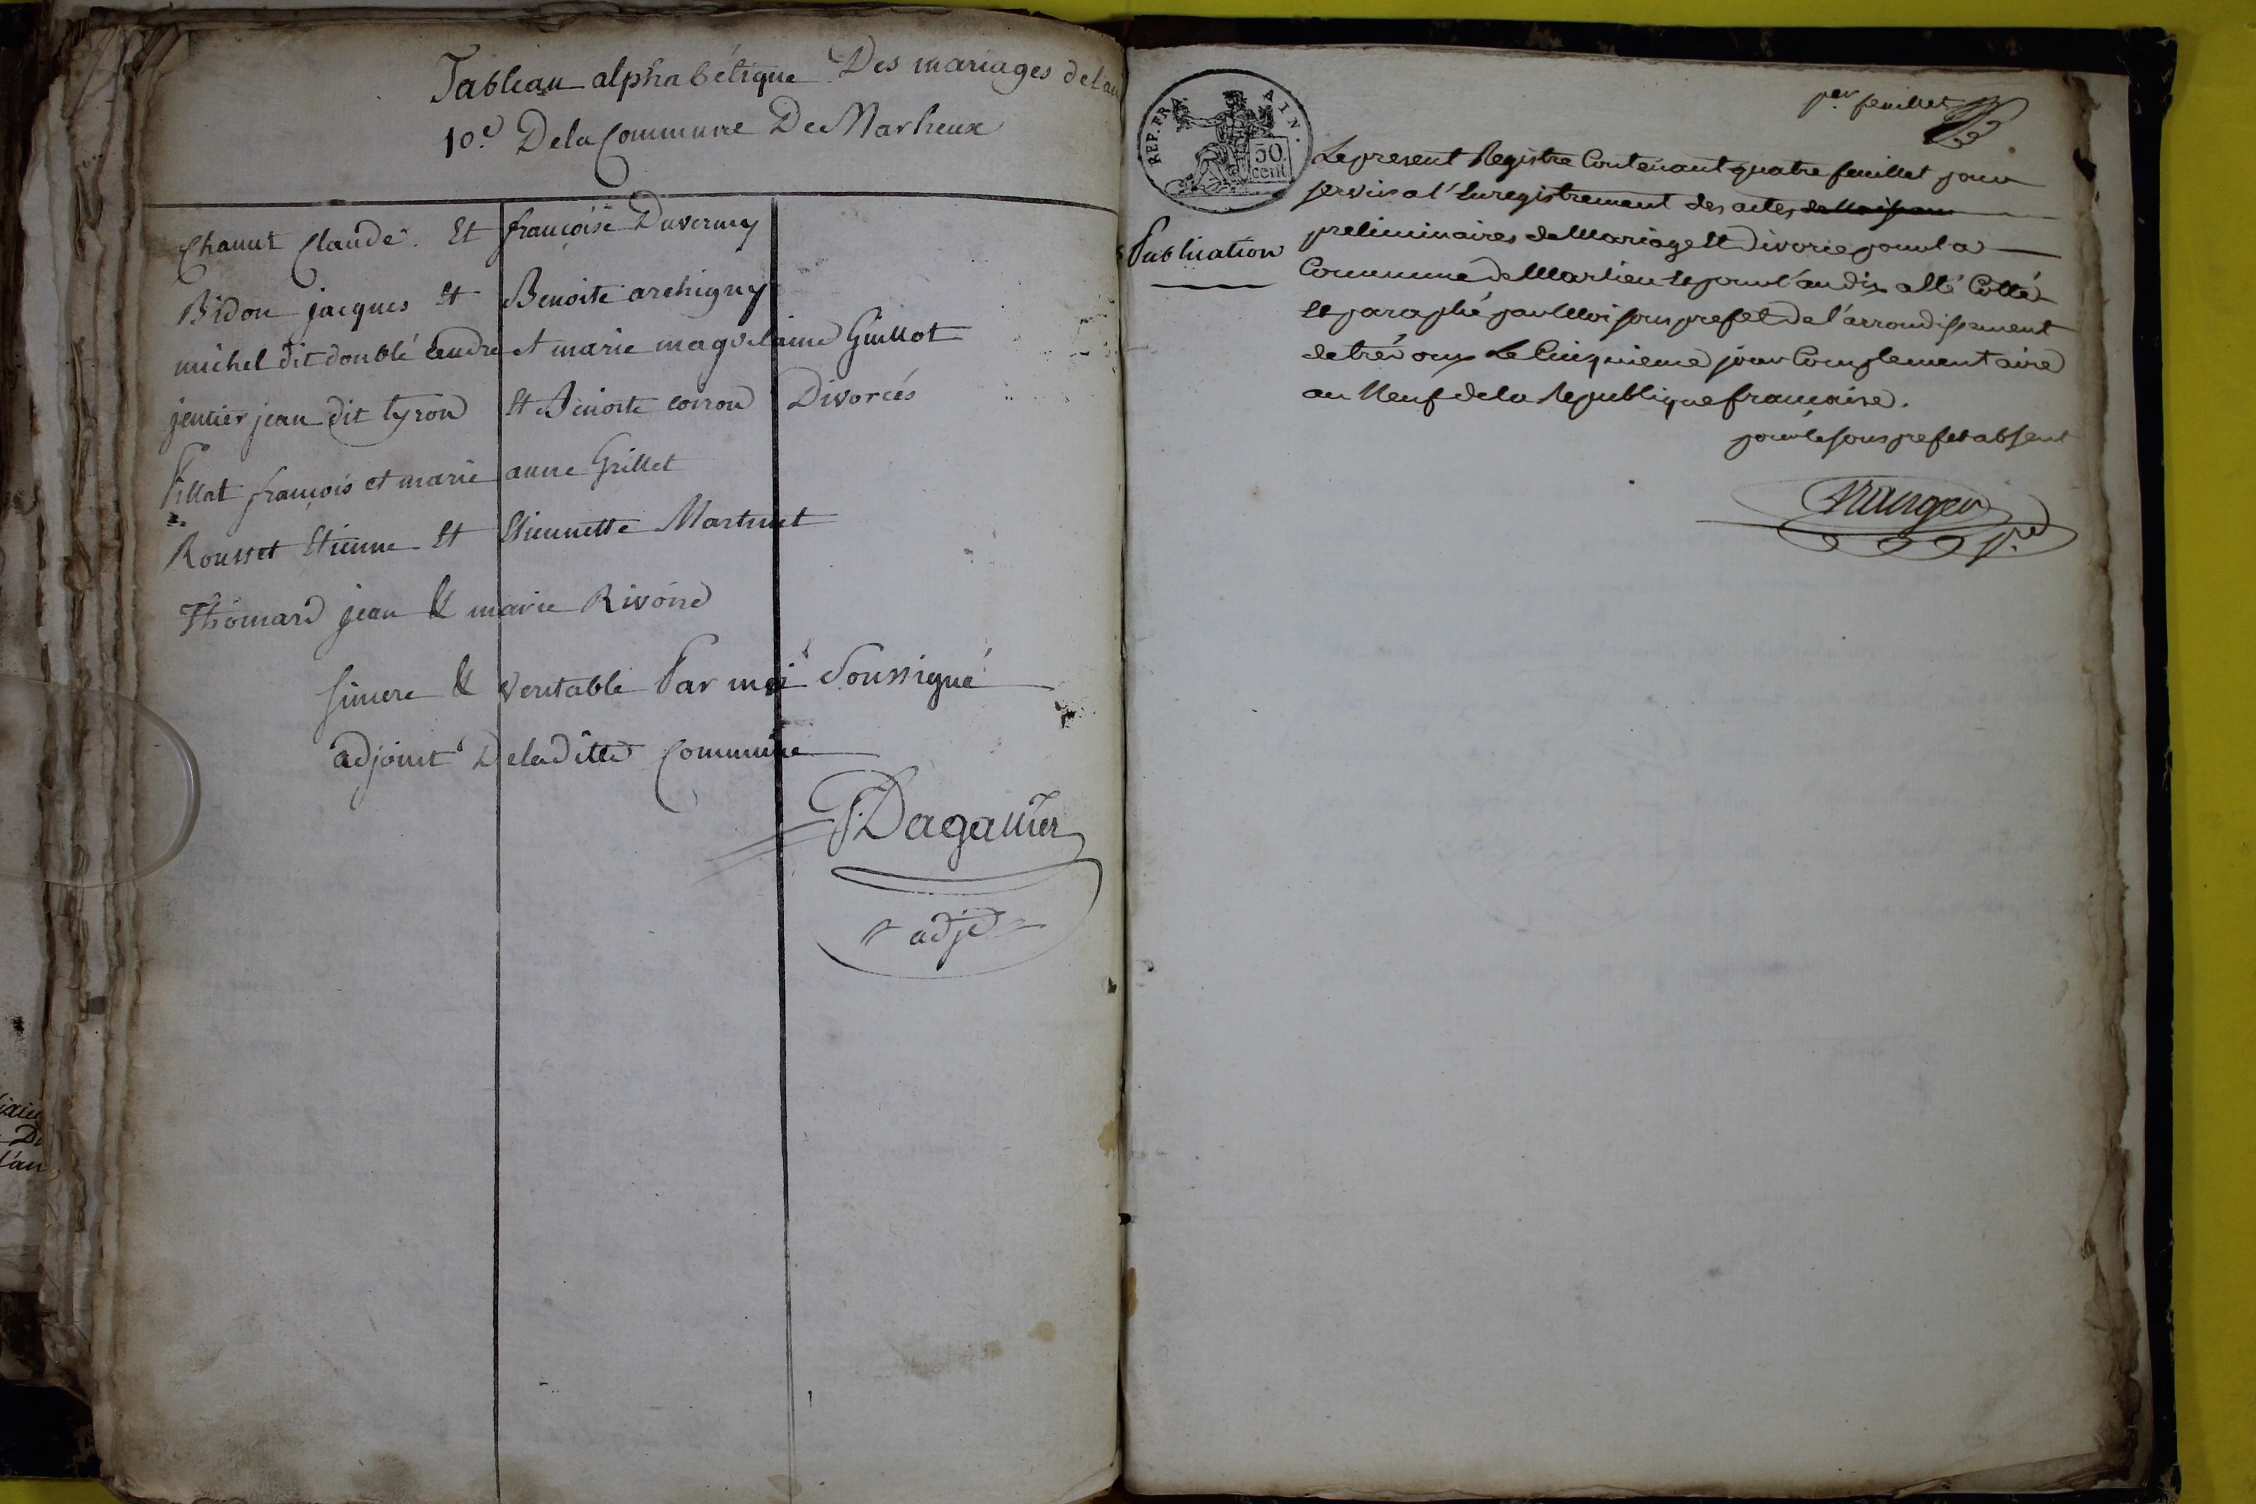 Tableau alphabétique Des mariages de lan
10.e De la Commune De Marlieux
Chanut Claude. Et françoise Duvernay
Bidon jacques et Benoite archigny
michel dit doublé Andre et marie magdelaine Guillot
jentier jean dit tyron et Benoite coiron Divorcés
Fillat françois et marie anne Grillet
Rousset Etienne Et Etiennette Martinet
Thomard jean & marie Rivoire
sincere & veritable Par moi Soussigné
adjoint De la ditte Commune
Dagallier
adjt
ixie
Di
l'an
REP. FRA. AIN.
50 cent
per feuillet
Publication
Le present Registre Contenant quatre feuillet pour
servir a l'Enregistrement des actes de Naissance
preliminaires de Mariage et Divorce pour la
Commune de Marlieu et pour l'an dix a Eté Cotté
et paraphé par Moi sous prefet de l'arrondissement
de trévoux Le Cinquieme jour Complementaire
an Neuf de la Republique francaise.
pour le sous prefet absent